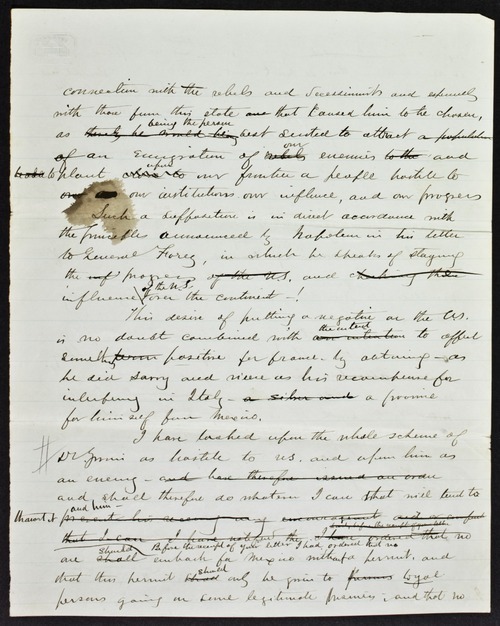 connection with the rebels and secessionists and especially
with those from this state and that caused him to be chosen,
being the person
as thereby he would being best suited to attract a population
our
of an Emigration of rebels enemies to the and
to plant upon our frontier a people hostile to
our our institutions our influence, and our progress
Such a supposition is in direct accordance with
the principles announced by Napoleon in his letter
to General Forey, in which he speaks of staying
the progress of the U.S. and checking their
of the U.S.
influence over the continent - !
This desire of putting a negative on the U.S.
the intent
is no doubt combined with an intention to effect
something positive for france - by obtaining - as
he did Savoy and Nice as his recompense for
interfering in Italy - a silver and a province
for himself from Mexico.
I have looked upon the whole scheme of
Dr Gwin as hostile to U.S. and upon him as
an enemy - and have therefore issued an order
and shall therefore do whatever I can that will tend to
and him -
thwart it prevent his
that I can I have not sent the I have ordered that no
Before the receipt of your letter I had ordered that no
should
one shall embark for Mexico without a permit, and
should
that this permit only be given to loyal
persons going on some legitimate business; and that no